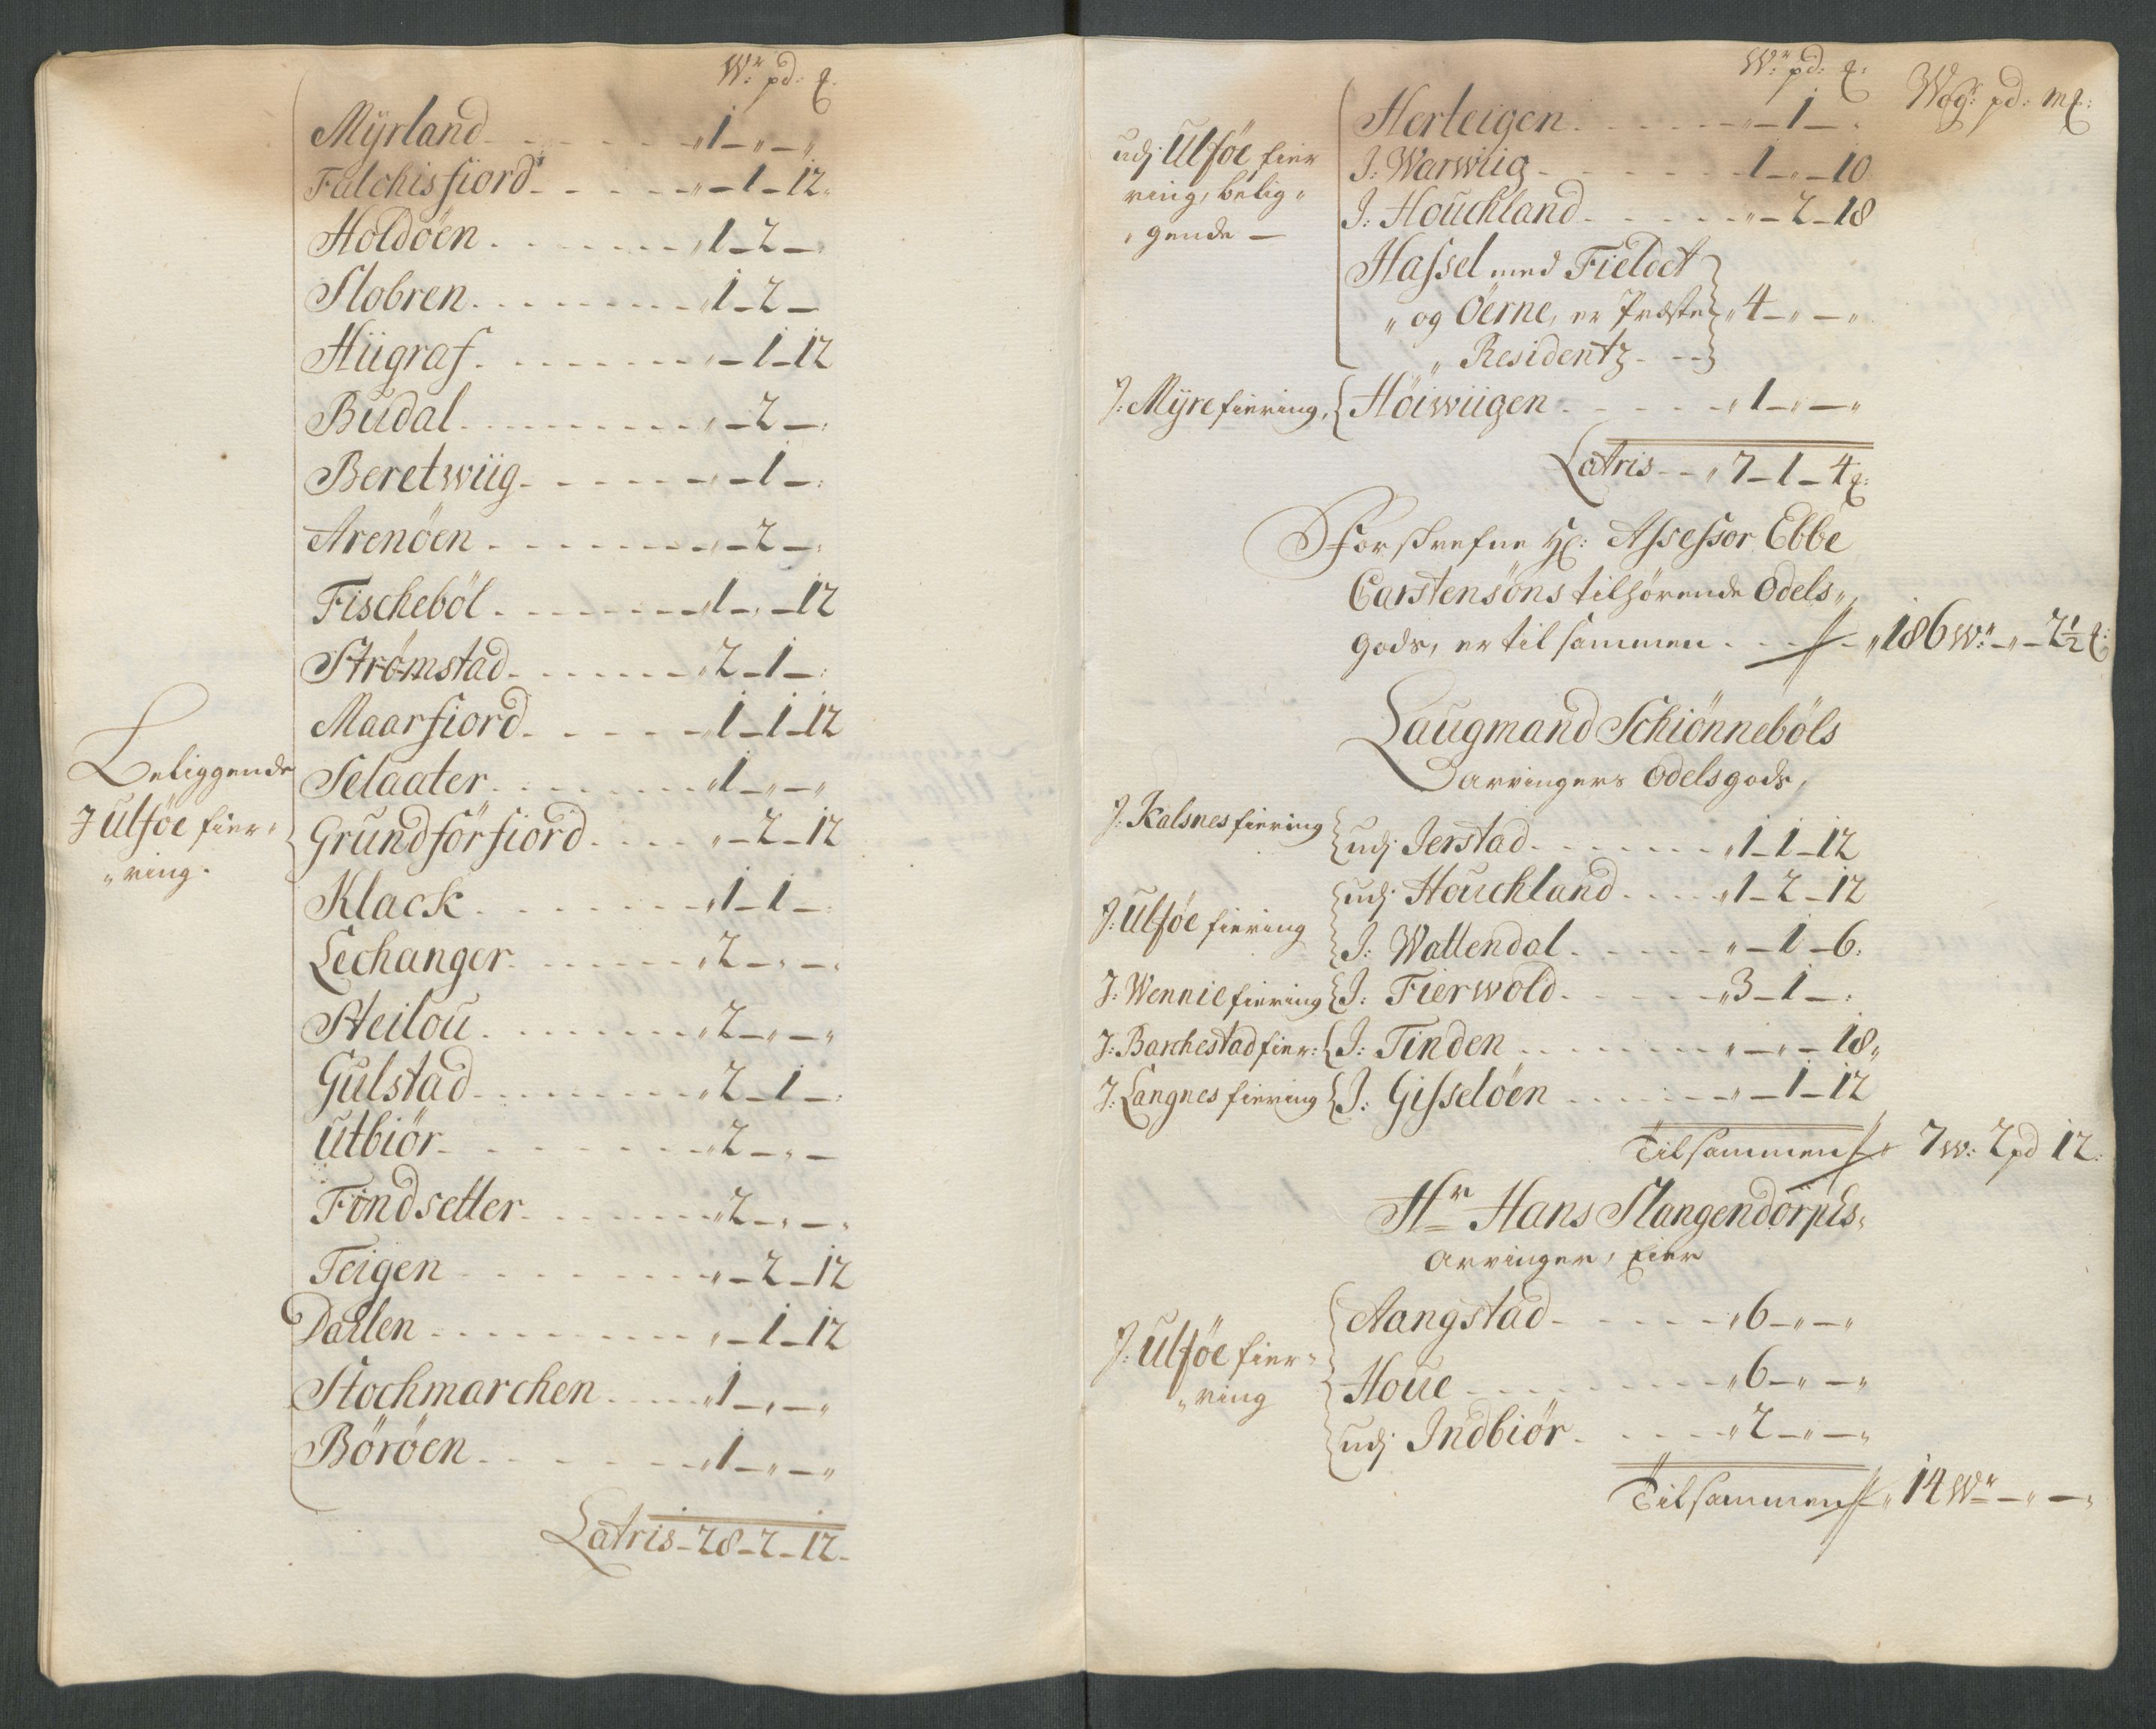 Wr: pd: ℔.
Mÿrland - - - - - - „ 1 - „ - „
Falchisfiord - - - - - „ - 1 - 12.
Holdöen . - - - - - „ 1 - 2 - „
Slobren . - - - - - „ 1 - 2 -
Hügraf . - - - - - „ - 1 - 12
Büdal . - - - - - „ - 2 - „
Beretwiig - - - - - „ - 1 - „
Arenöen . - - - - - „ - 2 - „
Fischeböl . - - - - - „ 1 - „ - 12
Strømstad - - - - - „ 2 - 1 - „
Maarfiord - - - - - „ 1 - 1 - 12
Beliggende
J Ulföe fier„
„ring.
Selaater . - - - - - „ 1 - „ - „
Grundförfiord . - - - „ - 2 - 12
Klack . - - - - - „ 1 - 1 - „
Lechanger . - - - - - „ 2 - „ - „
Steilou . - - - - - „ 2 - „ - „
Gulstad - - - - - „ 2 - 1 - „
Utbiör - - - - - „ 2 - „ -
Findsetter . - - - - - „ 2 - „ - „
Teigen - - - - - „ - 2 - 12
Dallen - - - - - „ - 1 - 12
Stochmarchen . - - - „ 1 - „ - „
Böröen - - - - - „ 1 - „ - „
Latris - 28 - 2 - 12 -
Wr: pd: ℔: Wog: pd: m℔:
udj Ulföe fier
ring, belig„
„gende —
Herleigen . - - - - - „ - 1 - „
J: Warwiig - - - - - 1 - „ - 10
J: Houchland - - - - - „ - 2 - 18
Hassel med Fieldet
„ og Öerne, er Præste „ 4 - „ - „
„ Residentz - - -
J: Mÿre fiering, Höiwiigen . - - - - - „ 1 - „ - „
Latris - - „ 7 - 1 - 4 ℔:
Forskrefne Hr: Assessor Ebbe
Carstensöns tilhörende Odels„
gods, er tilsammen . - - „ 186 Wr: - „ - 2½ ℔:
Laugmand Schiönneböls
arvingers Odelsgods,
J: Kalsnes fiering udj Jerstad - - - - - „ 1 - 1 - 12
J: Ulföe fiering udj Houchland . - - - - „ 1 - 2 - 12
J: Wattendal . - - - - - „ - 1 - 6:
J: Wennie fiering J: Fierwold - - - - - „ 3 - 1 - :
J: Barchestad fier: J: Tinden - - - - - „ - „ - 18 „
J: Langnes fiering J: Gisselöen - - - - - „ - 1 - 12
Tilsammen „ 7 w: 2 pd 12:
Hr Hans Slangendorphs
arvinger, Eier
J: Ulföe fier„
„ring
Aangstad - - - - - „ 6 - „ - „
Houe - - - - - „ 6 - „ - „
udj Indbiör . - - - - „ 2 - „ - „
Tilsammen „ 14 Wr - „ - „